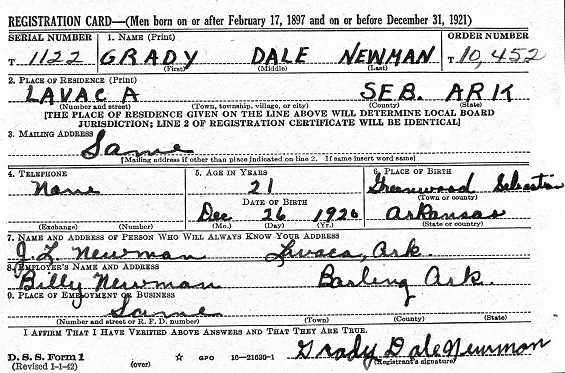 REGISTRATION CARD—(Men born on or after February 17, 1897 and on or before December 31, 1921)
SERIAL NUMBER 1. NAME (Print) ORDER NUMBER
T 1122 GRADY DALE NEWMAN T 10,452
(First) (Middle) (Last)
2. PLACE OF RESIDENCE (Print)
LAVACA SEB. ARK
(Number and street) (Town, township, village, or city) (County) (State)
[THE PLACE OF RESIDENCE GIVEN ON THE LINE ABOVE WILL DETERMINE LOCAL BOARD
JURISDICTION; LINE 2 OF REGISTRATION CERTIFICATE WILL BE IDENTICAL]
3. MAILING ADDRESS
Same
[Mailing address if other than place indicated on line 2. If same insert word same]
4. TELEPHONE 5. AGE IN YEARS 6. PLACE OF BIRTH
None 21 Greenwood Sebastian
DATE OF BIRTH (Town or county)
Dec 26 1920 Arkansas
(Exchange) (Number) (Mo.) (Day) (Yr.) (State or country)
7. NAME AND ADDRESS OF PERSON WHO WILL ALWAYS KNOW YOUR ADDRESS
J. L. Newman Lavaca, Ark.
8. EMPLOYER'S NAME AND ADDRESS
Billy Newman Barling Ark.
9. PLACE OF EMPLOYMENT OR BUSINESS
Same
(Number and street or R. F. D. number) (Town) (County) (State)
I AFFIRM THAT I HAVE VERIFIED ABOVE ANSWERS AND THAT THEY ARE TRUE.
D. S. S. Form 1 (over) ☆ GPO 16—21630-1 Grady Dale Newman
(Revised 1-1-42) (Registrant's signature)